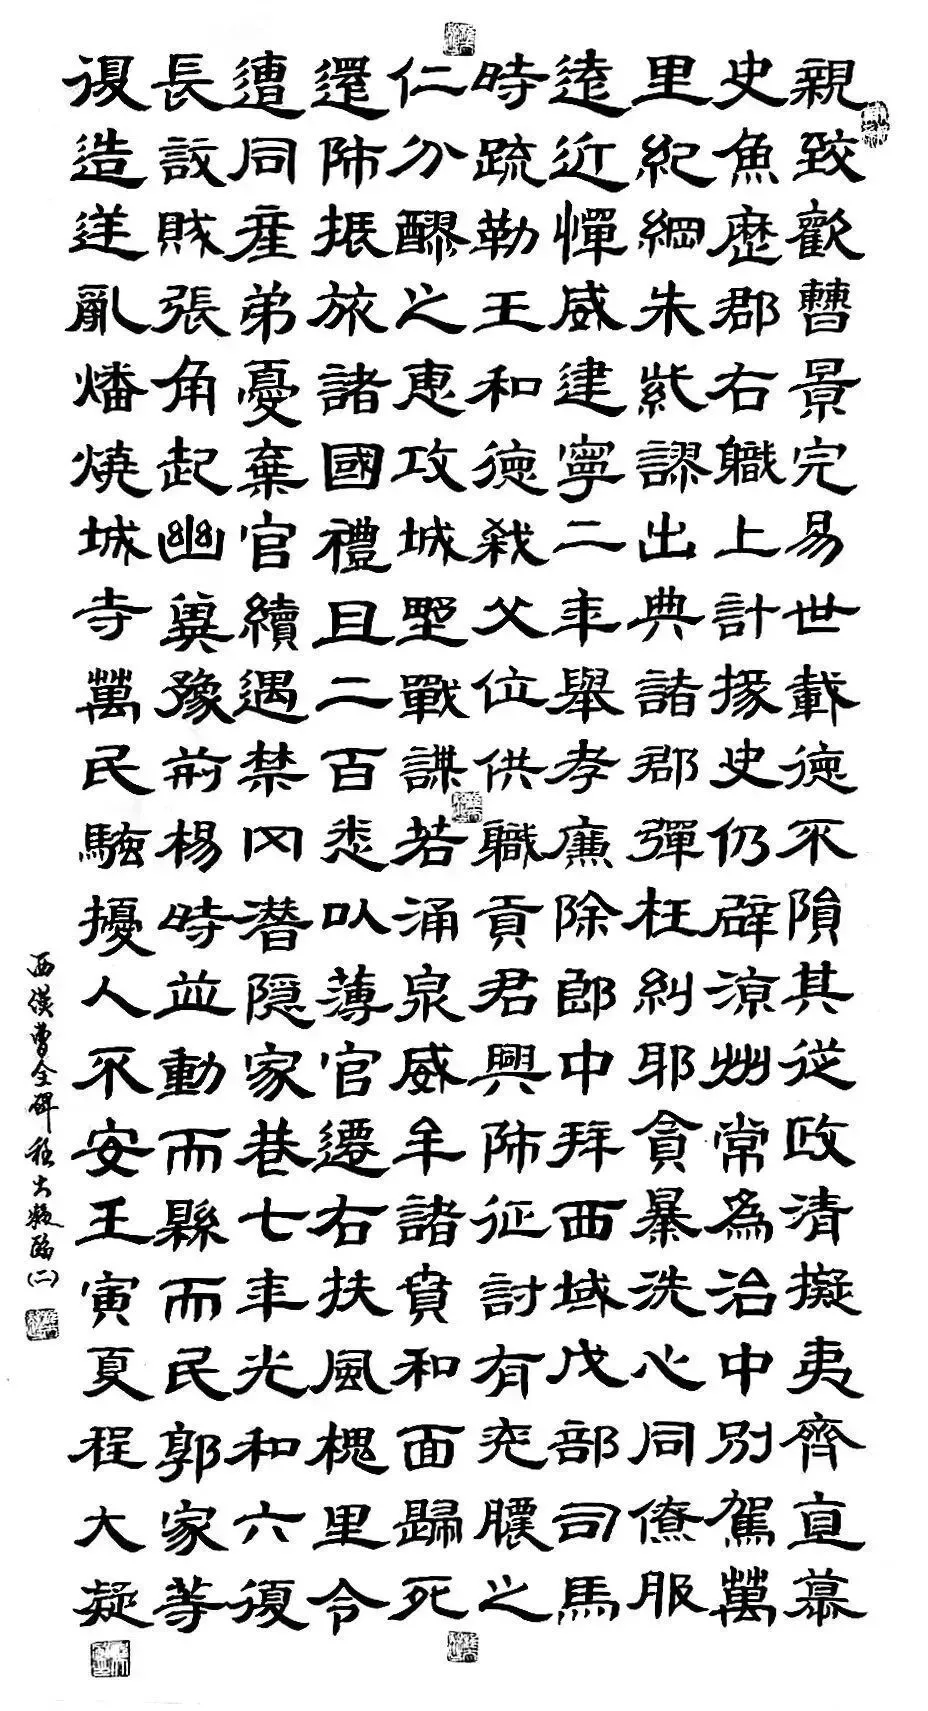 親致歡曹景完易世載德不隕其從政清擬夷齊直慕
史魚歷郡右職上計掾史仍辟涼州常為治中別駕萬
里紀綱朱紫謬出典諸郡彈枉糾邪貪暴洗心同僚服
遠近憚威建寧二年舉孝廉除郎中拜西域戊部司馬
時疏勒王和德殺父位供職貢君興師征討有兗膿之
仁分醪之惠攻城野戰謀若涌泉威牟諸賁和面歸死
還師振旅諸國禮且二百悉以薄官遷右扶風槐里令
遭同產弟憂棄官續遇禁冈潛隱家巷七年光和六復
長訞賊張角起幽冀豫荊楊時並動而縣而民郭家等
復造逆亂燔燒城寺萬民騷擾人不安王寅夏程大凝
西漢曹全碑程大凝臨(二)